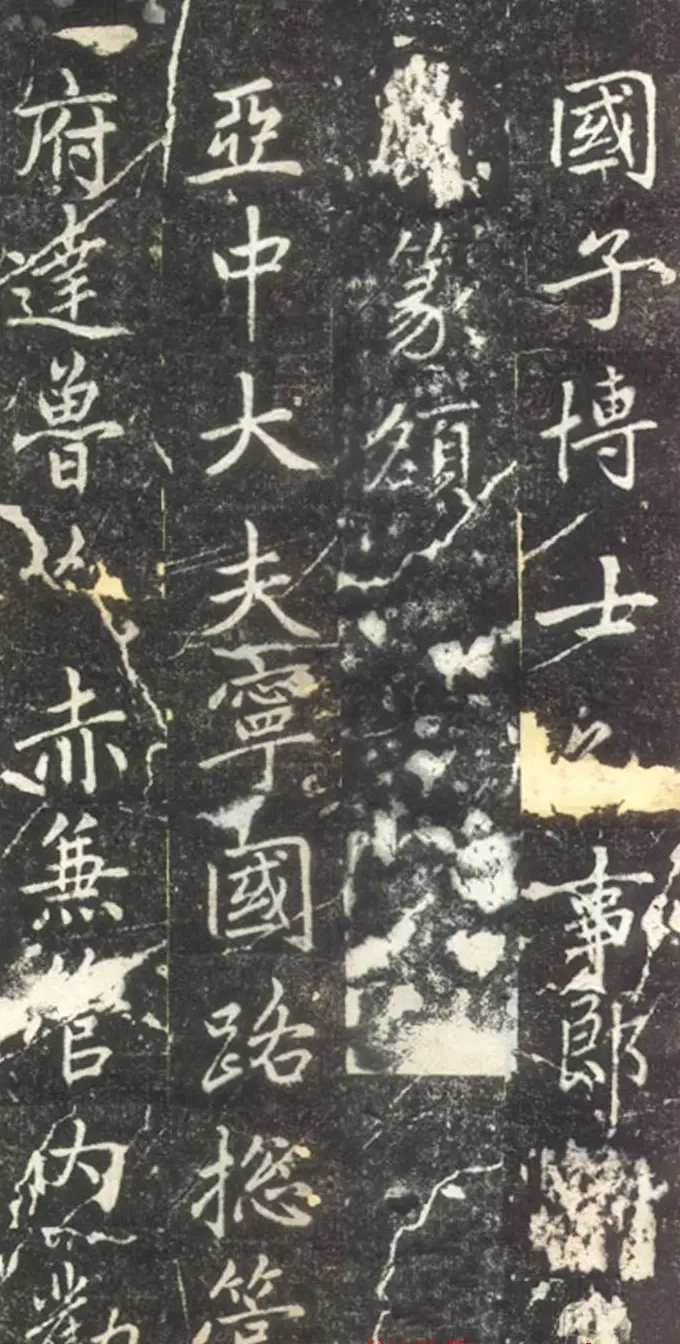 國子博士事郎
篆額
亞中大夫寧國路摠管
府達魯赤兼管內勸